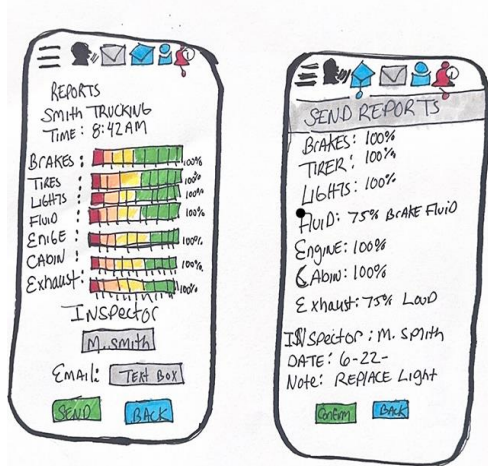 REPORTS
Smith TRUCKING
TIME: 8:42 AM
BRAKES: 100%
TIRES : 100%
LIGHTS : 100%
FLUID : 100%
ENIGE : 100%
CABIN :
Exhaust: 100%
INSPECTOR
M. Smith
EMAIL: TEXT BOX
SEND BACK
SEND REPORTS
BRAKES: 100%
TIRER: 100%
LIGHTS: 100%
FLUID: 75% BRAKE FLUID
ENGINE: 100%
CABIN: 100%
Exhaust: 75% LOUD
INSPECTOR: M. Smith
DATE: 6-22-
Note: REPLACE Light
Confirm BACK